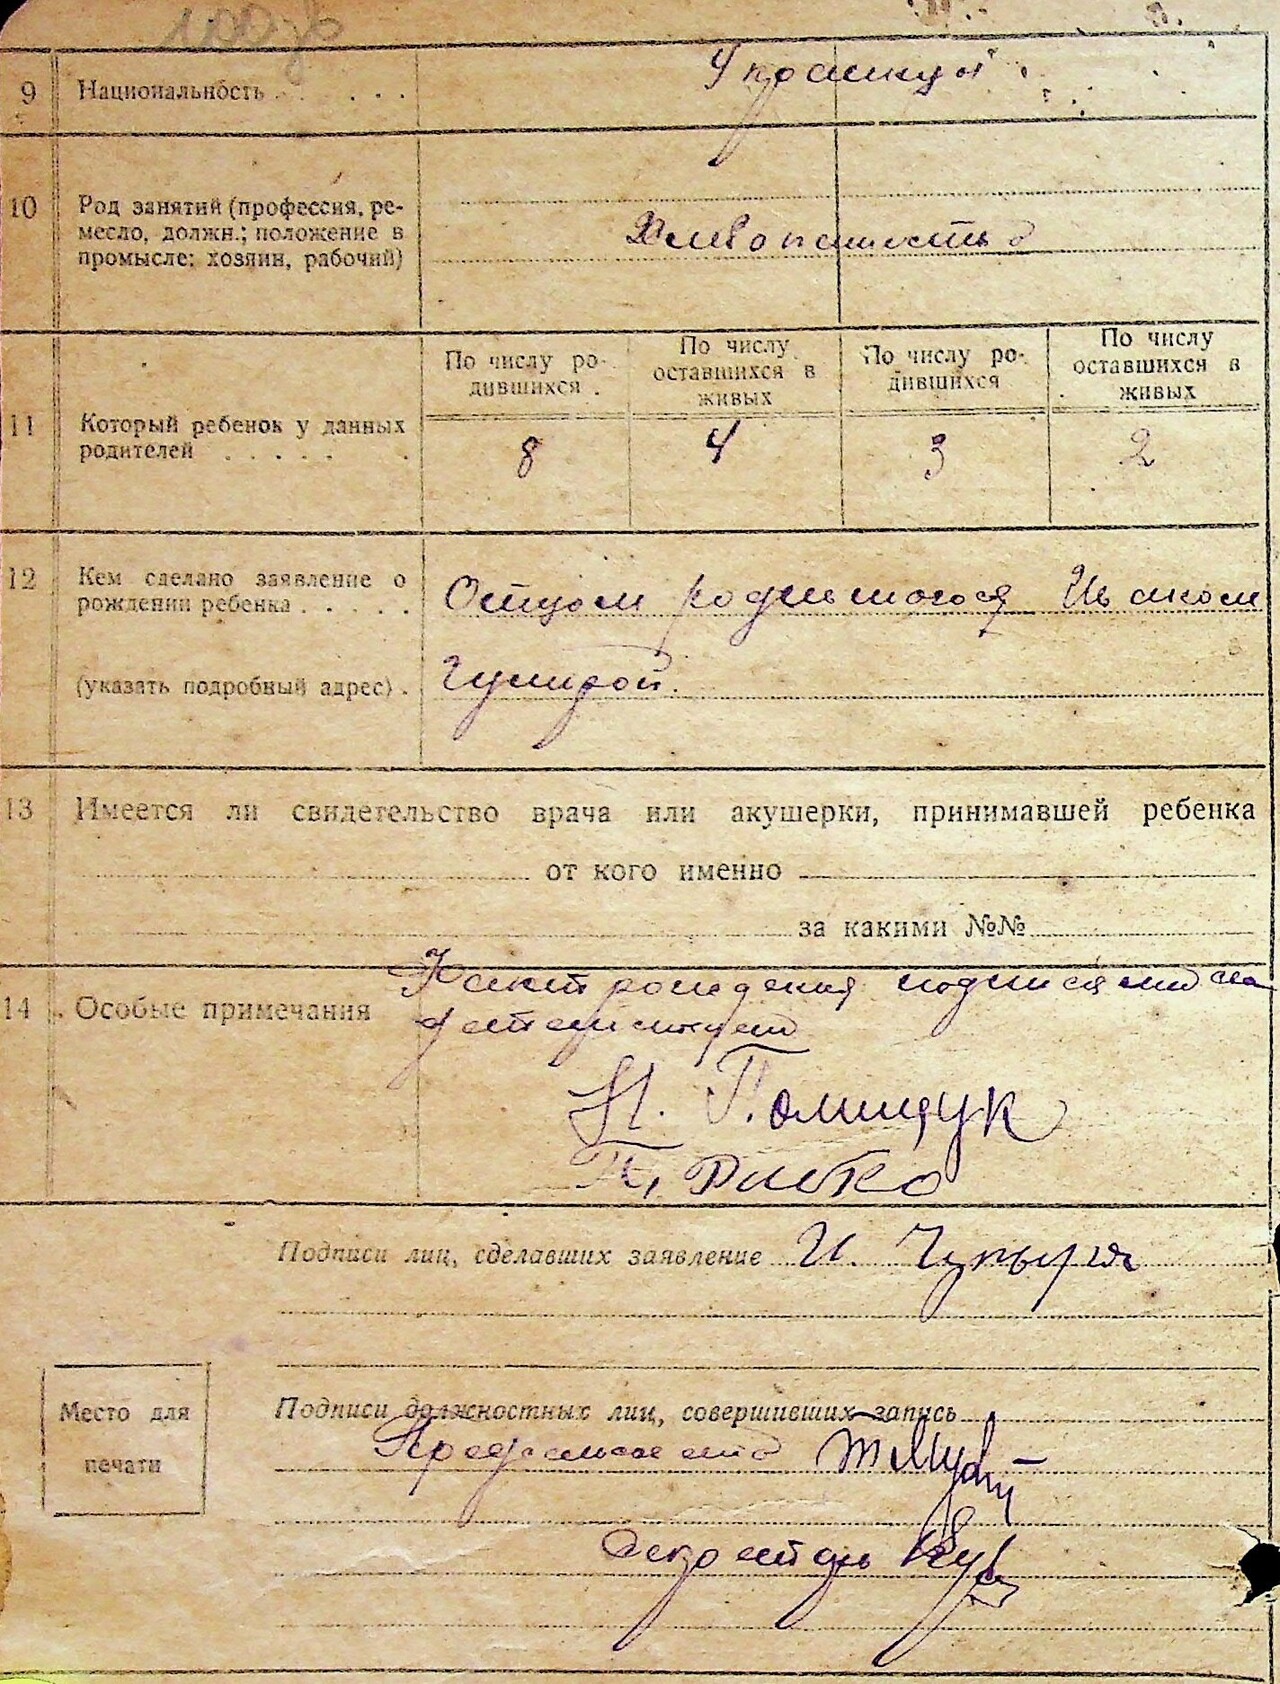 9 Национальность . . . . . Украинцы
10 Род занятий (профессия, ре-
месло, должн.; положение в
промысле: хозяин, рабочий)
Хлебопашество
По числу ро-
дившихся
По числу
оставшихся в
живых
По числу ро-
дившихся
По числу
оставшихся в
живых
11 Который ребенок у данных
родителей . . . . . .
8 4 3 2
12 Кем сделано заявление о
рождении ребенка . . . . .
Отцом родившогося Иваном
(указать подробный адрес) .
13 Имеется ли свидетельство врача или акушерки, принимавшей ребенка
от кого именно
за какими №№
14 Особые примечания
Факт рождения подписями
Н. Полищук
П. Рибко
Подписи лиц, сделавших заявление И. Чупыря
Подписи должностных лиц, совершивших запись
Место для
печати
Предсельсовета
Секретарь